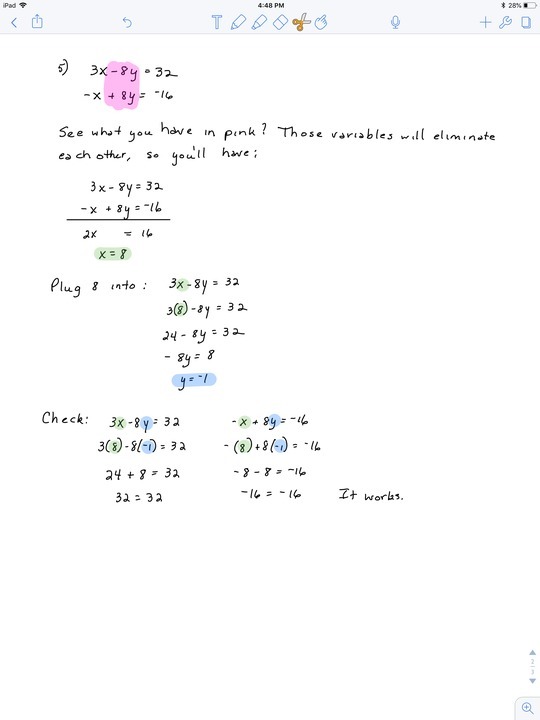 iPad
4:48 PM
28%
5) 3x - 8y = 32
-x + 8y = -16
See what you have in pink? Those variables will eliminate
each other, so you'll have:
3x - 8y = 32
-x + 8y = -16
2x = 16
x = 8
Plug 8 into: 3x - 8y = 32
3(8) - 8y = 32
24 - 8y = 32
-8y = 8
y = -1
Check: 3x - 8y = 32 -x + 8y = -16
3(8) - 8(-1) = 32 -(8) + 8(-1) = -16
24 + 8 = 32 -8 - 8 = -16
32 = 32 -16 = -16 It works.